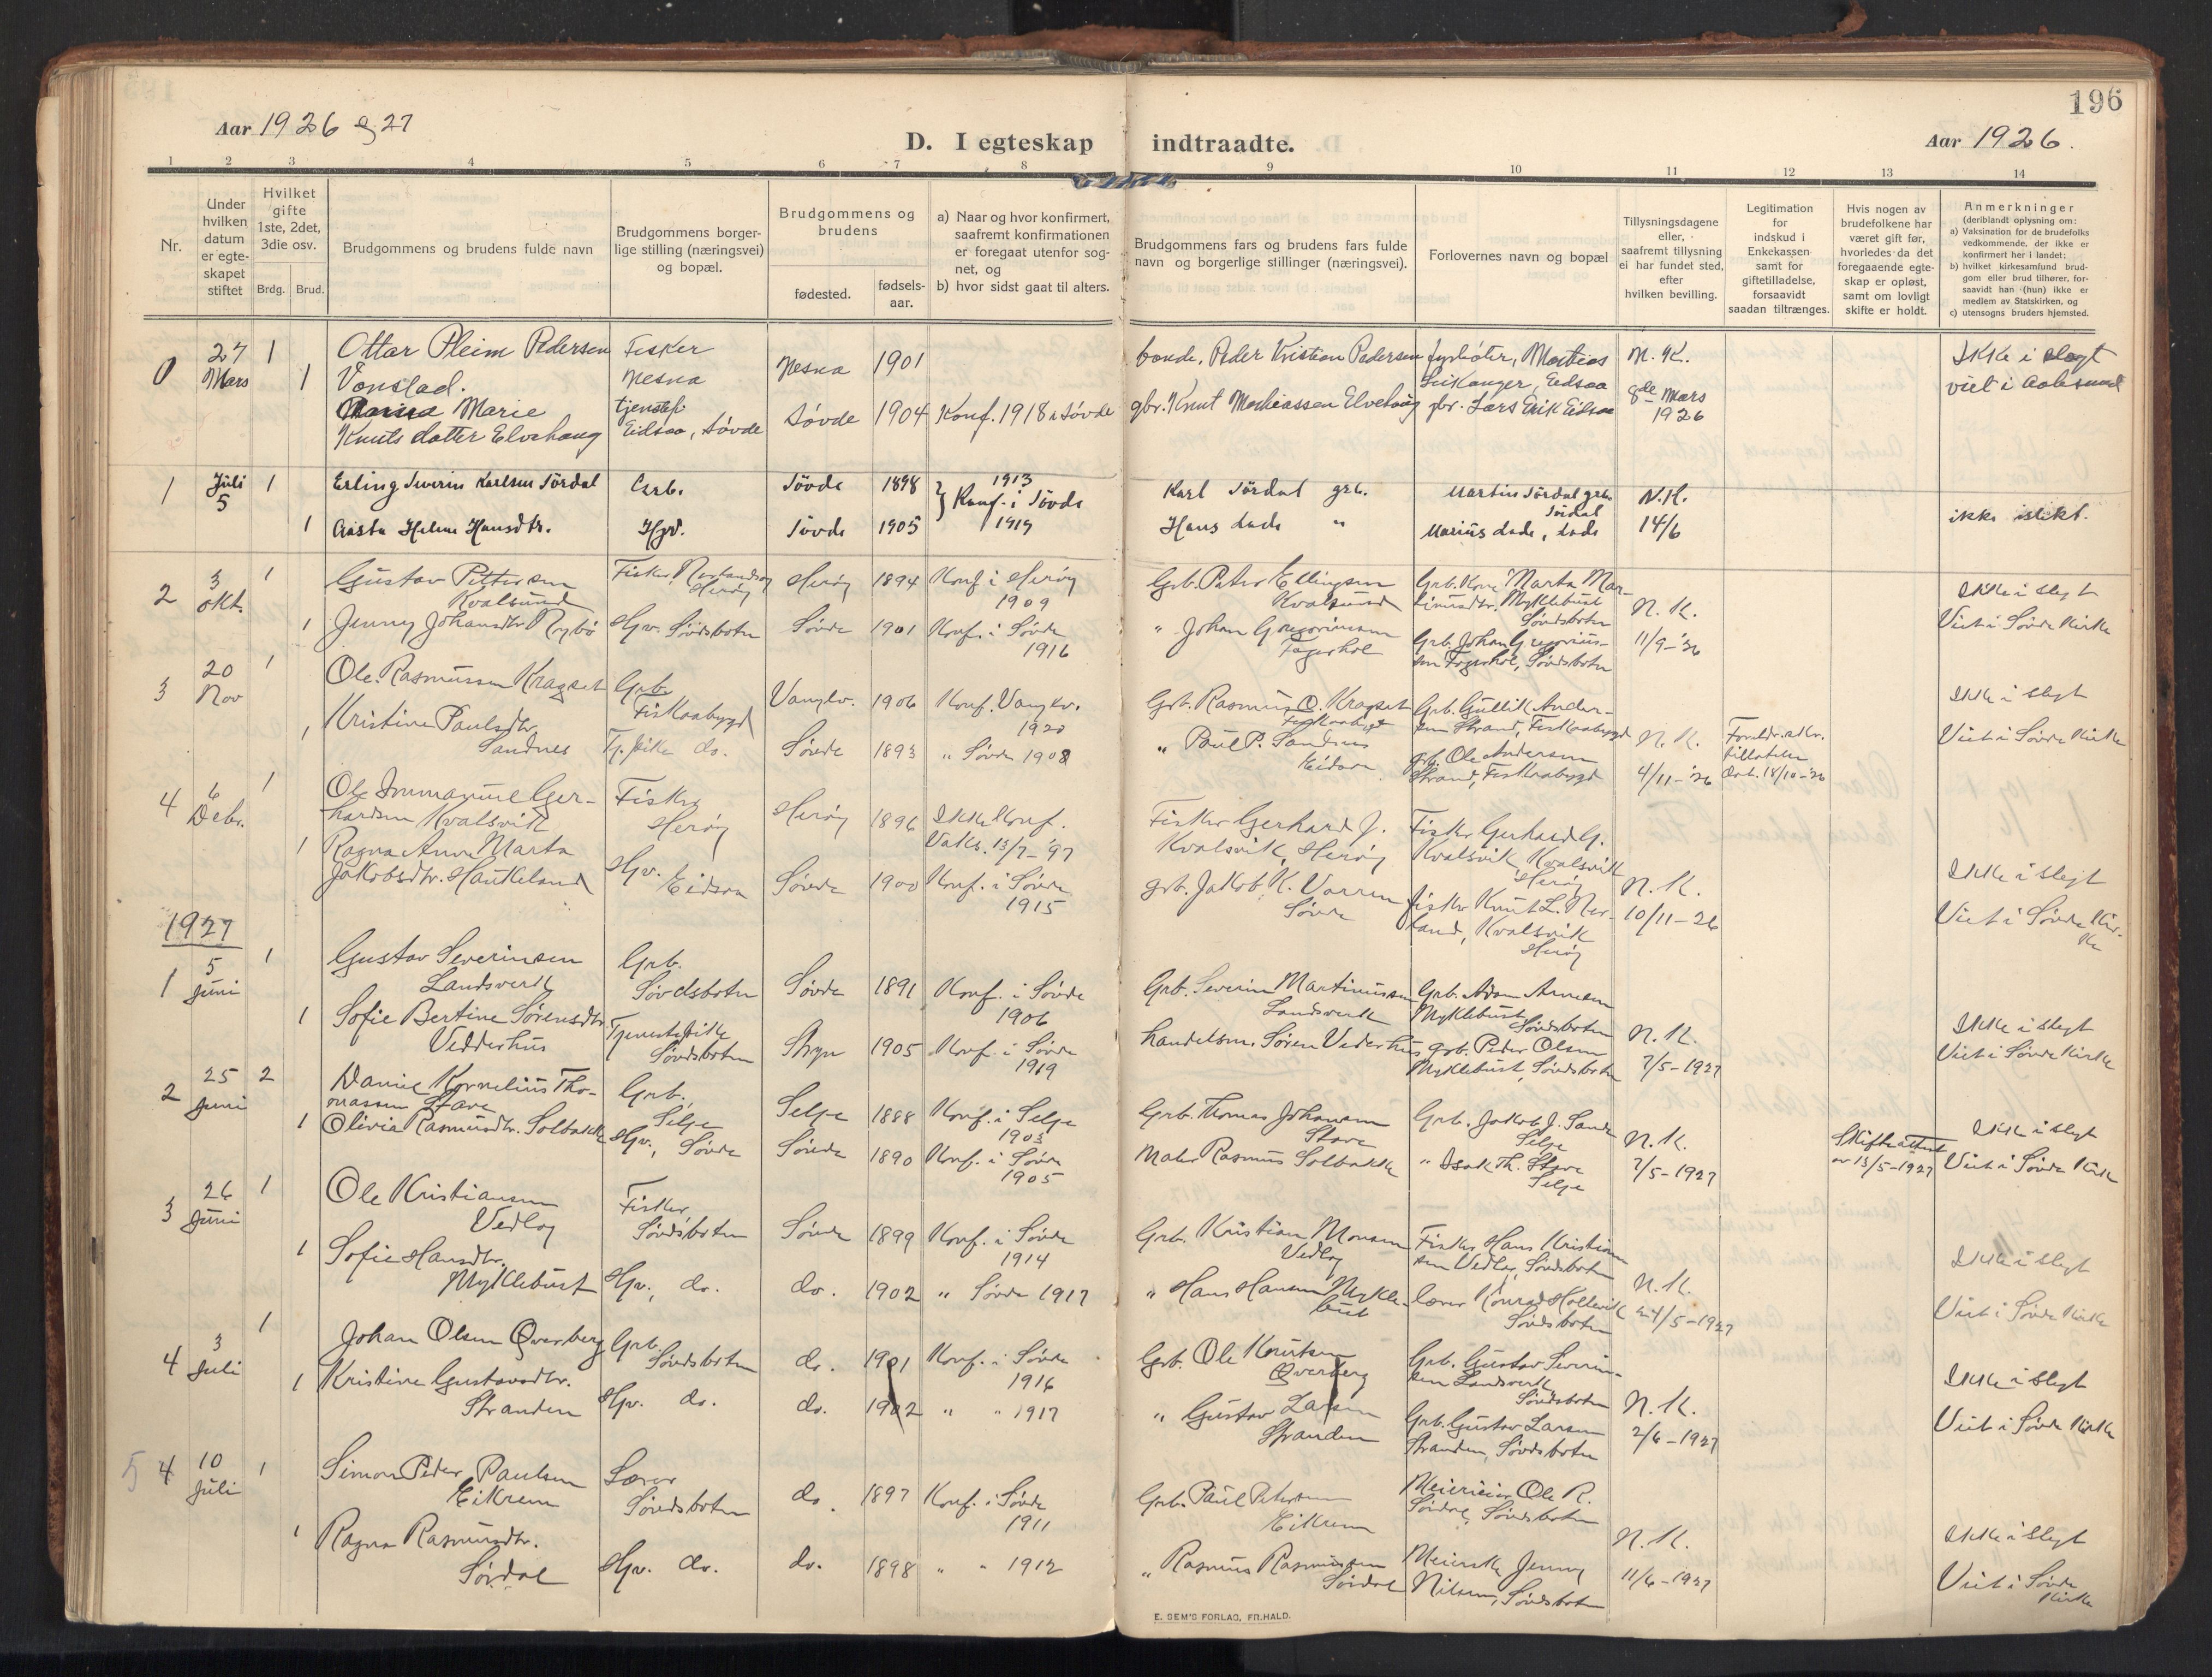 196
Aar 1926 og 27
D. I egteskap indtraadte.
Aar 1926.
1 2 3 4 5 6 7 8 9 10 11 12 13 14
Nr.
Under hvilken datum er egte-skapet stiftet
Hvilket gifte 1ste, 2det, 3die osv.
Brdg. Brud.
Brudgommens og brudens fulde navn
Brudgommens borger-lige stilling (næringsvei) og bopæl.
Brudgommens og brudens
fødested.
fødsels-aar.
a) Naar og hvor konfirmert, saafremt konfirmationen er foregaat utenfor sog-net, og
b) hvor sidst gaat til alters.
Brudgommens fars og brudens fars fulde navn og borgerlige stillinger (næringsvei).
Forlovernes navn og bopæl
Tillysningsdagene eller, saafremt tillysning ei har fundet sted, efter hvilken bevilling.
Legitimation for indskud i Enkekassen samt for giftetilladelse, forsaavidt saadan tiltrænges.
Hvis nogen av brudefolkene har været gift før, hvorledes da det foregaaende egte-skap er opløst, samt om lovligt skifte er holdt.
Anmerkninger
(deriblandt oplysning om:
a) Vaksination for de brudefolks vedkommende, der ikke er konfirmert her i landet;
b) hvilket kirkesamfund brud-gom eller brud tilhører, for-saavidt han (hun) ikke er medlem av Statskirken, og
c) utensogns bruders hjemsted.
0 27 Mars 1 Ottar Pleim Pedersen Vonstad. Fisker Nesna Nesna 1901 bonde, Peder Kristian Pedersen Mathias Leikanger, Eidsaa N. K. Ikke i slegt
1 Marie Knutsdatter Elvehaug Eidsaa, Søvde Søvde 1904 Konf. 1918 i Søvde gbr. Knut Mathiassen Elvehaug gbr. Lars Erik Eidsaa 8de Mars 1926 viet i Aalesund
1 Juli 5 1 Erling Severin Karlsen Sördal Arb. Søvde 1898 1913 Konf. i Søvde Karl Sördal grb. Martin Sördal grb. Sördal N. K.
1 Aasta Helene Hansdtr. Hgv. Søvde 1905 1919 Hans dode " Marius dode, dode 14/6 ikke i slekt.
2 3 Okt. 1 Gustav Pettersen Kvalsund Fisker, Nerlandsøy Herøy Herøy 1894 Konf. i Herøy 1909 Grb. Peter Ellingsen Kvalsund Grb. Kone Marta Mar-tinusdtr. Myklebust Søvdsbotn N. K. Ikke i slegt
1 Jenny Johansdtr Nybø Hgv. Søvdsbotn Søvde 1901 Konf. i Søvde 1916 " Johan Gregoriussen Fagerhol Grb. Johan Gregorius-sen Fagerhol, Søvdsbotn 11/9-26 Viet i Søvde Kirke
3 20 Nov 1 Ole Rasmussen Kragset Grb. Fiskaabygd Vanylv. 1906 Konf. Vanylv. 1920 Grb. Rasmus O. Kragset Fiskaabygd Grb. Gullik Ander-sen Strand, Fiskaabygd N. K. Ikke i slegt
1 Kristine Paulsdtr. Sandnes Tj.pike do. Søvde 1893 " Søvde 1908 " Paul P. Sandnes Eidsaa grb. Ole Andersen Strand, Fiskaabygd 4/11-'26 dat. 18/10-'26 Viet i Søvde Kirke
4 6 Debr. 1 Ole Immanuel Ger-hardsen Kvalsvik Fisker Herøy Herøy 1896 Ikke konf. Vaks. 13/7-'97 Fisker Gerhard J. Kvalsvik, Herøy Fisker Gerhard G. Kvalsvik, Kvalsvik Herøy N. K. Ikke i slegt
1 Ragna Anna Marta Jakobsdtr. Haukeland Hgv. Eidsaa Søvde 1900 Konf. i Søvde 1915 grb. Jakob K. Vorren Søvde fisker Knut L. Ner-land, Kvalsvik Herøy 10/11-26 Viet i Søvde Kir-ke
1927
1 5 Juni 1 Gustav Severinsen Landsverk Grb. Søvdsbotn Søvde 1891 Konf. i Søvde 1906 Grb. Severin Martinussen Landsverk Grb. Adam Arnesen Myklebust Søvdsbotn N. K. Ikke i slegt
1 Sofie Bertine Sørensdtr Vedderhus Tjenestepike Søvdsbotn Stryn 1905 Konf. i Søvde 1919 handelsm. Søren Vederhus grb. Peder Olsen Myklebust, Søvdsbotn 7/5-1927 Viet i Søvde Kirke
2 25 Juni 2 Daniel Kornelius Tho-massen Stave Grb. Selje Selje 1888 Konf. i Selje 1903 Grb. Thomas Johansen Stave Grb. Jakob J. Sande Selje N. K. Skifteattest av 13/5-1927 Ikke i slegt
1 Olivia Rasmusdtr. Solbakk Hgv., Søvde Søvde 1890 Konf. i Søvde 1905 Maler Rasmus Solbakk " Isak Th. Stave Selje 7/5-1927 Viet i Søvde Kirke
3 26 Juni 1 Ole Kristiansen Vedlog Fisker, Søvdsbotn Søvde 1899 Konf. i Søvde 1914 Grb. Kristian Monsen Vedlog Fisker Hans Kristian-sen Vedlog, Søvdsbotn N. K. Ikke i slegt
1 Sofie Hansdtr. Myklebust Hgv., do. do. 1902 " Søvde 1917 " Hans Hansen Mykle-bust Lærer Konrad Hollevik Søvdsbotn 24/5-1927 Viet i Søvde Kirke
4 3 Juli 1 Johan Olsen Øverberg Grb. Søvdsbotn do. 1901 Konf. i Søvde 1916 Grb. Ole Knutsen Øverberg Grb. Gustav Severin-sen Landsverk Søvdsbotn N. K. Ikke i slegt
1 Kristine Gustavsdtr. Stranden Hgv. do. do. 1902 " " 1917 " Gustav Larsen Stranden Grb. Gustav Larsen Stranden, Søvdsbotn 2/6-1927 Viet i Søvde Kirke
5 4 10 Juli 1 Simon Peder Paulsen Eikrem Lærer Søvdsbotn do. 1897 Konf. i Søvde 1911 Grb. Paul Petersen Eikrem Meierieier Ole R. Sørdal, Søvdsbotn N. K. Ikke i slegt
1 Ragna Rasmusdtr. Sørdal Hgv. do. do. 1898 " " 1912 " Rasmus Rasmussen Sørdal Meierske Jenny Nilsen, Søvdsbotn 11/6-1927 Viet i Søvde Kirke
E. SEM'S FORLAG, FR.HALD.